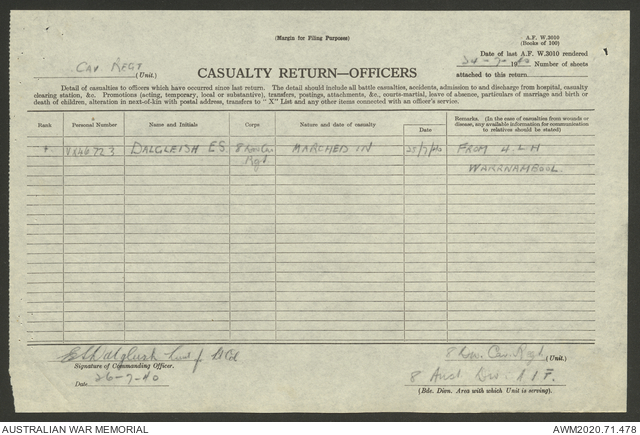 (Margin for Filing Purposes)
A.F. W.3010
(Books of 100)
Date of last A.F. W.3010 rendered
24-7-1940 Number of sheets
attached to this return
Cav Regt (Unit.)
CASUALTY RETURN—OFFICERS
Detail of casualties to officers which have occurred since last return. The detail should include all battle casualties, accidents, admission to and discharge from hospital, casualty
clearing station, &c. Promotions (acting, temporary, local or substantive), transfers, postings, attachments, &c., courts-martial, leave of absence, particulars of marriage and birth or
death of children, alteration in next-of-kin with postal address, transfers to "X" List and any other items connected with an officer's service.
Rank Personal Number Name and Initials Corps Nature and date of casualty Date Remarks. (In the case of casualties from wounds or
disease, any available information for communication
to relatives should be stated)
DALGLEISH E.S. 8 Cav MARCHED IN 25/7/40 FROM 4 LH
Regt WARRNAMBOOL
Lt Col
Signature of Commanding Officer.
Date 26-7-40
Cav. Regt (Unit.)
8 Aust Div. A.I.F.
(Bde. Divn. Area with which Unit is serving).
AUSTRALIAN WAR MEMORIAL
AWM2020.71.478